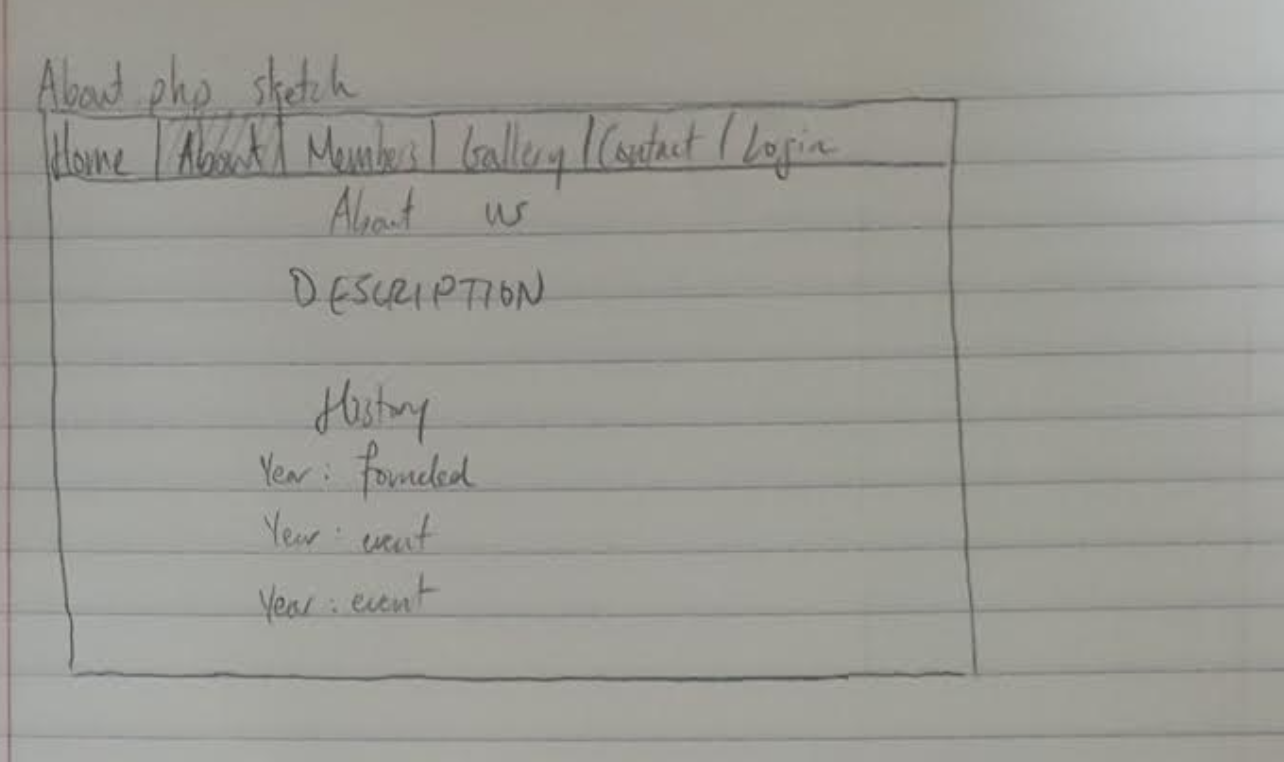 About php sketch
Home | About | Members | Gallery | Contact | Login
About us
DESCRIPTION
History
Year: founded
Year: event
Year: event